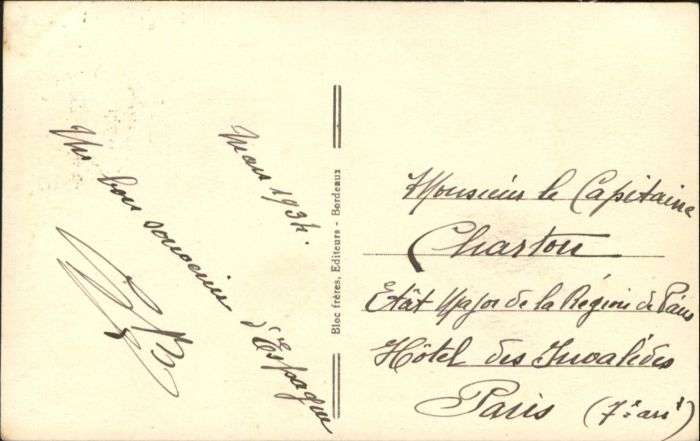 Mars 1934.
Un bon souvenir d'Espagne
Bloc frères, Editeurs - Bordeaux
Monsieur le Capitaine
Charton
Etât Major de la Région de Paris
Hôtel des Invalides
Paris (7e arrt)